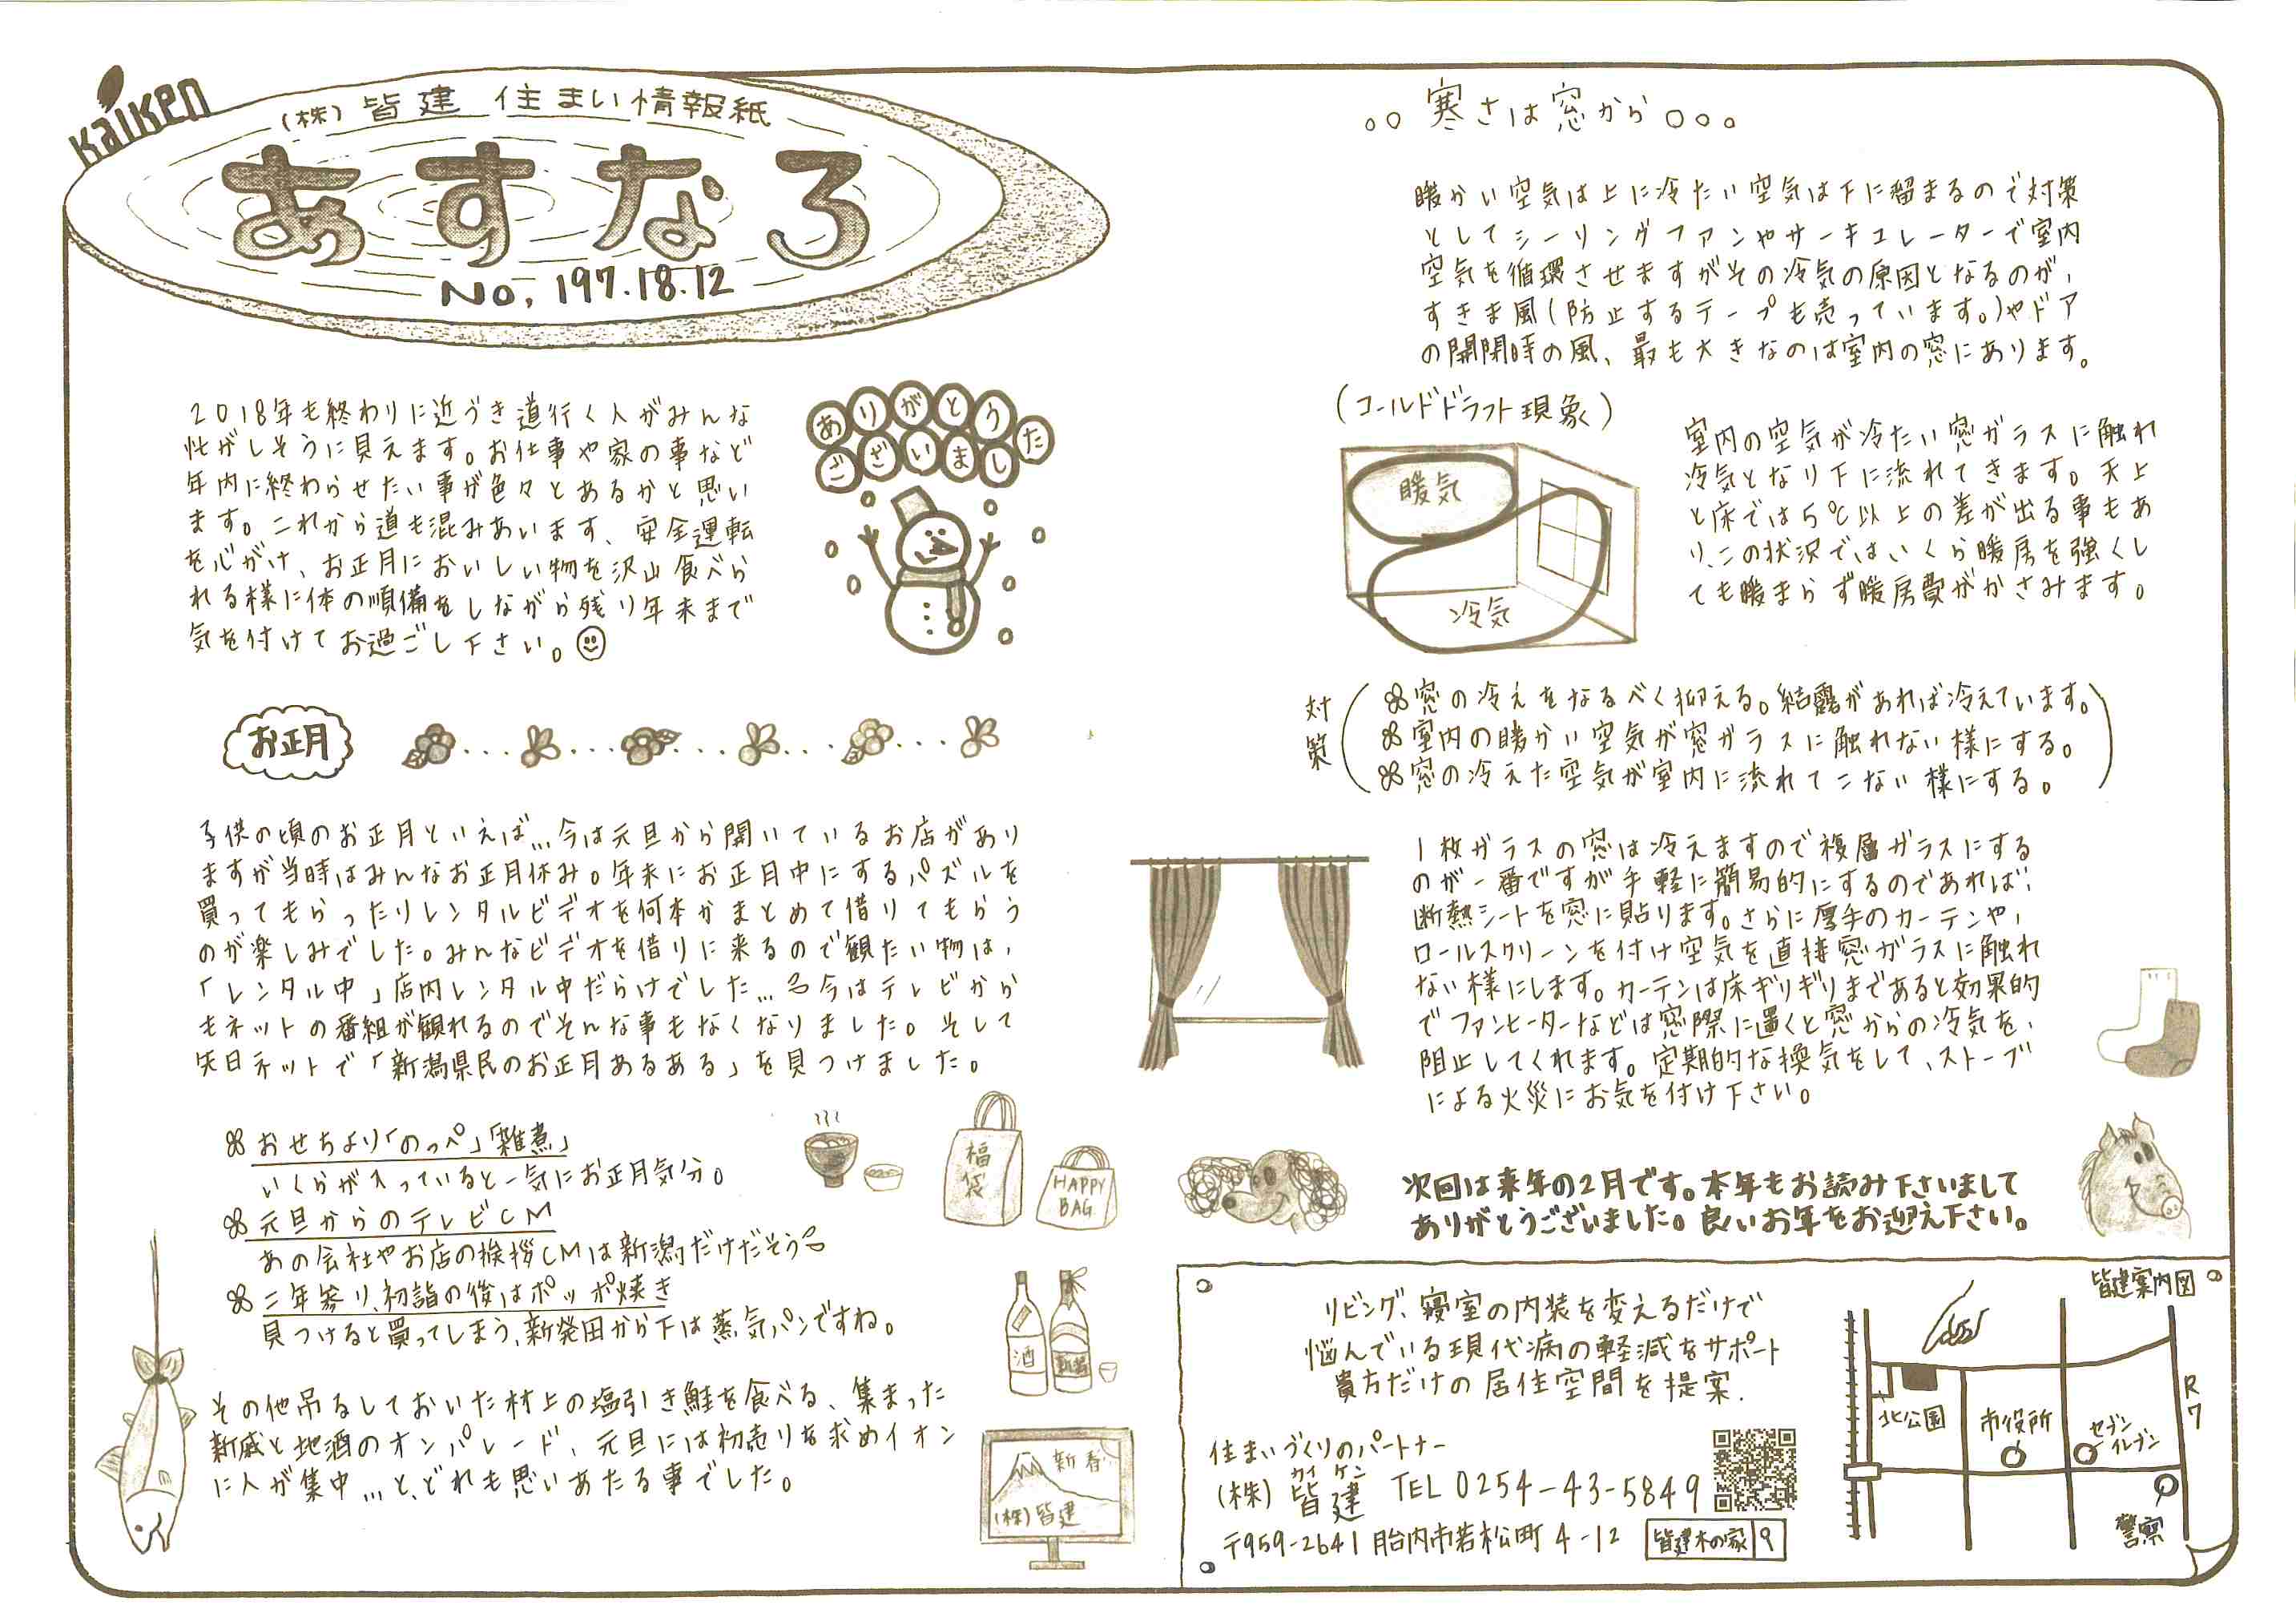 Kaiken
(株)皆建 住まい情報紙
あすなろ
No, 197.18.12
2018年も終わりに近づき道行く人がみんな
忙がしそうに見えます。お仕事や家の事など
年内に終わらせたい事が色々とあるかと思い
ます。これから道も混みあいます、安全運転
を心がけ、お正月においしい物を沢山食べら
れる様に体の順備をしながら残り年末まで
気を付けてお過ごし下さい。
ありがとう
ございました
お正月
子供の頃のお正月といえば…今は元旦から開いているお店があり
ますが当時はみんなお正月休み。年末にお正月中にするパズルを
買ってもらったりレンタルビデオを何本かまとめて借りてもらう
のが楽しみでした。みんなビデオを借りに来るので観たい物は、
「レンタル中」店内レンタル中だらけでした…今はテレビから
もネットの番組が観れるのでそんな事もなくなりました。そして
先日ネットで「新潟県民のお正月あるある」を見つけました。
おせちより「のっペ」「雑煮」
いくらが入っていると一気にお正月気分。
元旦からのテレビCM
あの会社やお店の挨拶CMは新潟だけだそう
二年参り、初詣の後はポッポ焼き
見つけると買ってしまう、新発田から下は蒸気パンですね。
その他吊るしておいた村上の塩引き鮭を食べる、集まった
新戚と地酒のオンパレード、元旦には初売りを求めイオン
に人が集中…と、どれも思いあたる事でした。
福袋
HAPPY
BAG
酒
新春
(株)皆建
寒さは窓から
暖かい空気は上に冷たい空気は下に留まるので対策
としてシーリングファンやサーキュレーターで室内
空気を循環させますがその冷気の原因となるのが、
すきま風(防止するテープも売っています。)やドア
の開閉時の風、最も大きなのは室内の窓にあります。
(コールドドラフト現象)
暖気
冷気
室内の空気が冷たい窓ガラスに触れ
冷気となり下に流れてきます。天上
と床では5℃以上の差が出る事もあ
り、この状況ではいくら暖房を強くし
ても暖まらず暖房費がかさみます。
対策
窓の冷えをなるべく抑える。結露があれば冷えています。
室内の暖かい空気が窓ガラスに触れない様にする。
窓の冷えた空気が室内に流れてこない様にする。
1枚ガラスの窓は冷えますので複層ガラスにする
のが一番ですが手軽に簡易的にするのであれば、
断熱シートを窓に貼ります。さらに厚手のカーテンや、
ロールスクリーンを付け空気を直接窓ガラスに触れ
ない様にします。カーテンは床ギリギリまであると効果的
でファンヒーターなどは窓際に置くと窓からの冷気を、
阻止してくれます。定期的な換気をして、ストーブ
による火災にお気を付け下さい。
次回は来年の2月です。本年もお読み下さいまして
ありがとうございました。良いお年をお迎え下さい。
リビング、寝室の内装を変えるだけで
悩んでいる現代病の軽減をサポート
貴方だけの居住空間を提案.
住まいづくりのパートナー
カイ ケン
(株)皆建 TEL 0254-43-5849
〒959-2641 胎内市若松町 4-12
皆建木の家 9
皆建案内図
北公園
市役所
セブン
イレブン
R7
警察